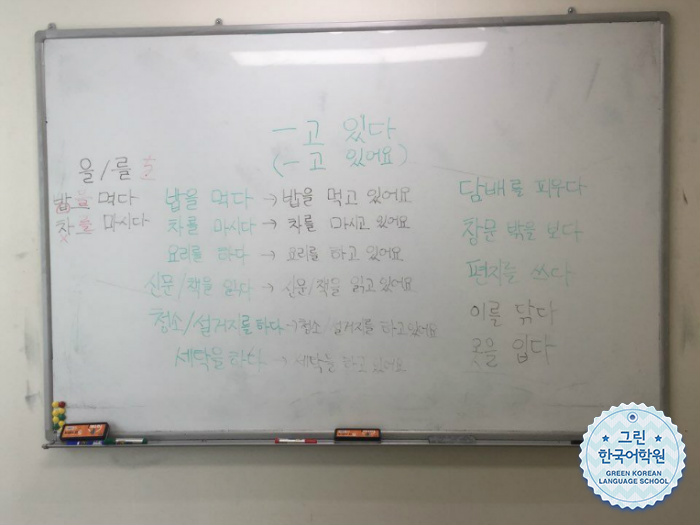 ㅡ고 있다
(ㅡ고 있어요)
을/를
밥을 먹다
차를 마시다
밥을 먹다 → 밥을 먹고 있어요
차를 마시다 → 차를 마시고 있어요
요리를 하다 → 요리를 하고 있어요
신문/책을 읽다 → 신문/책을 읽고 있어요
청소/설거지를 하다 → 청소/설거지를 하고 있어요
세탁을 하다 → 세탁을 하고 있어요
담배를 피우다
창문 밖을 보다
편지를 쓰다
이를 닦다
옷을 입다
그린
한국어학원
GREEN KOREAN
LANGUAGE SCHOOL